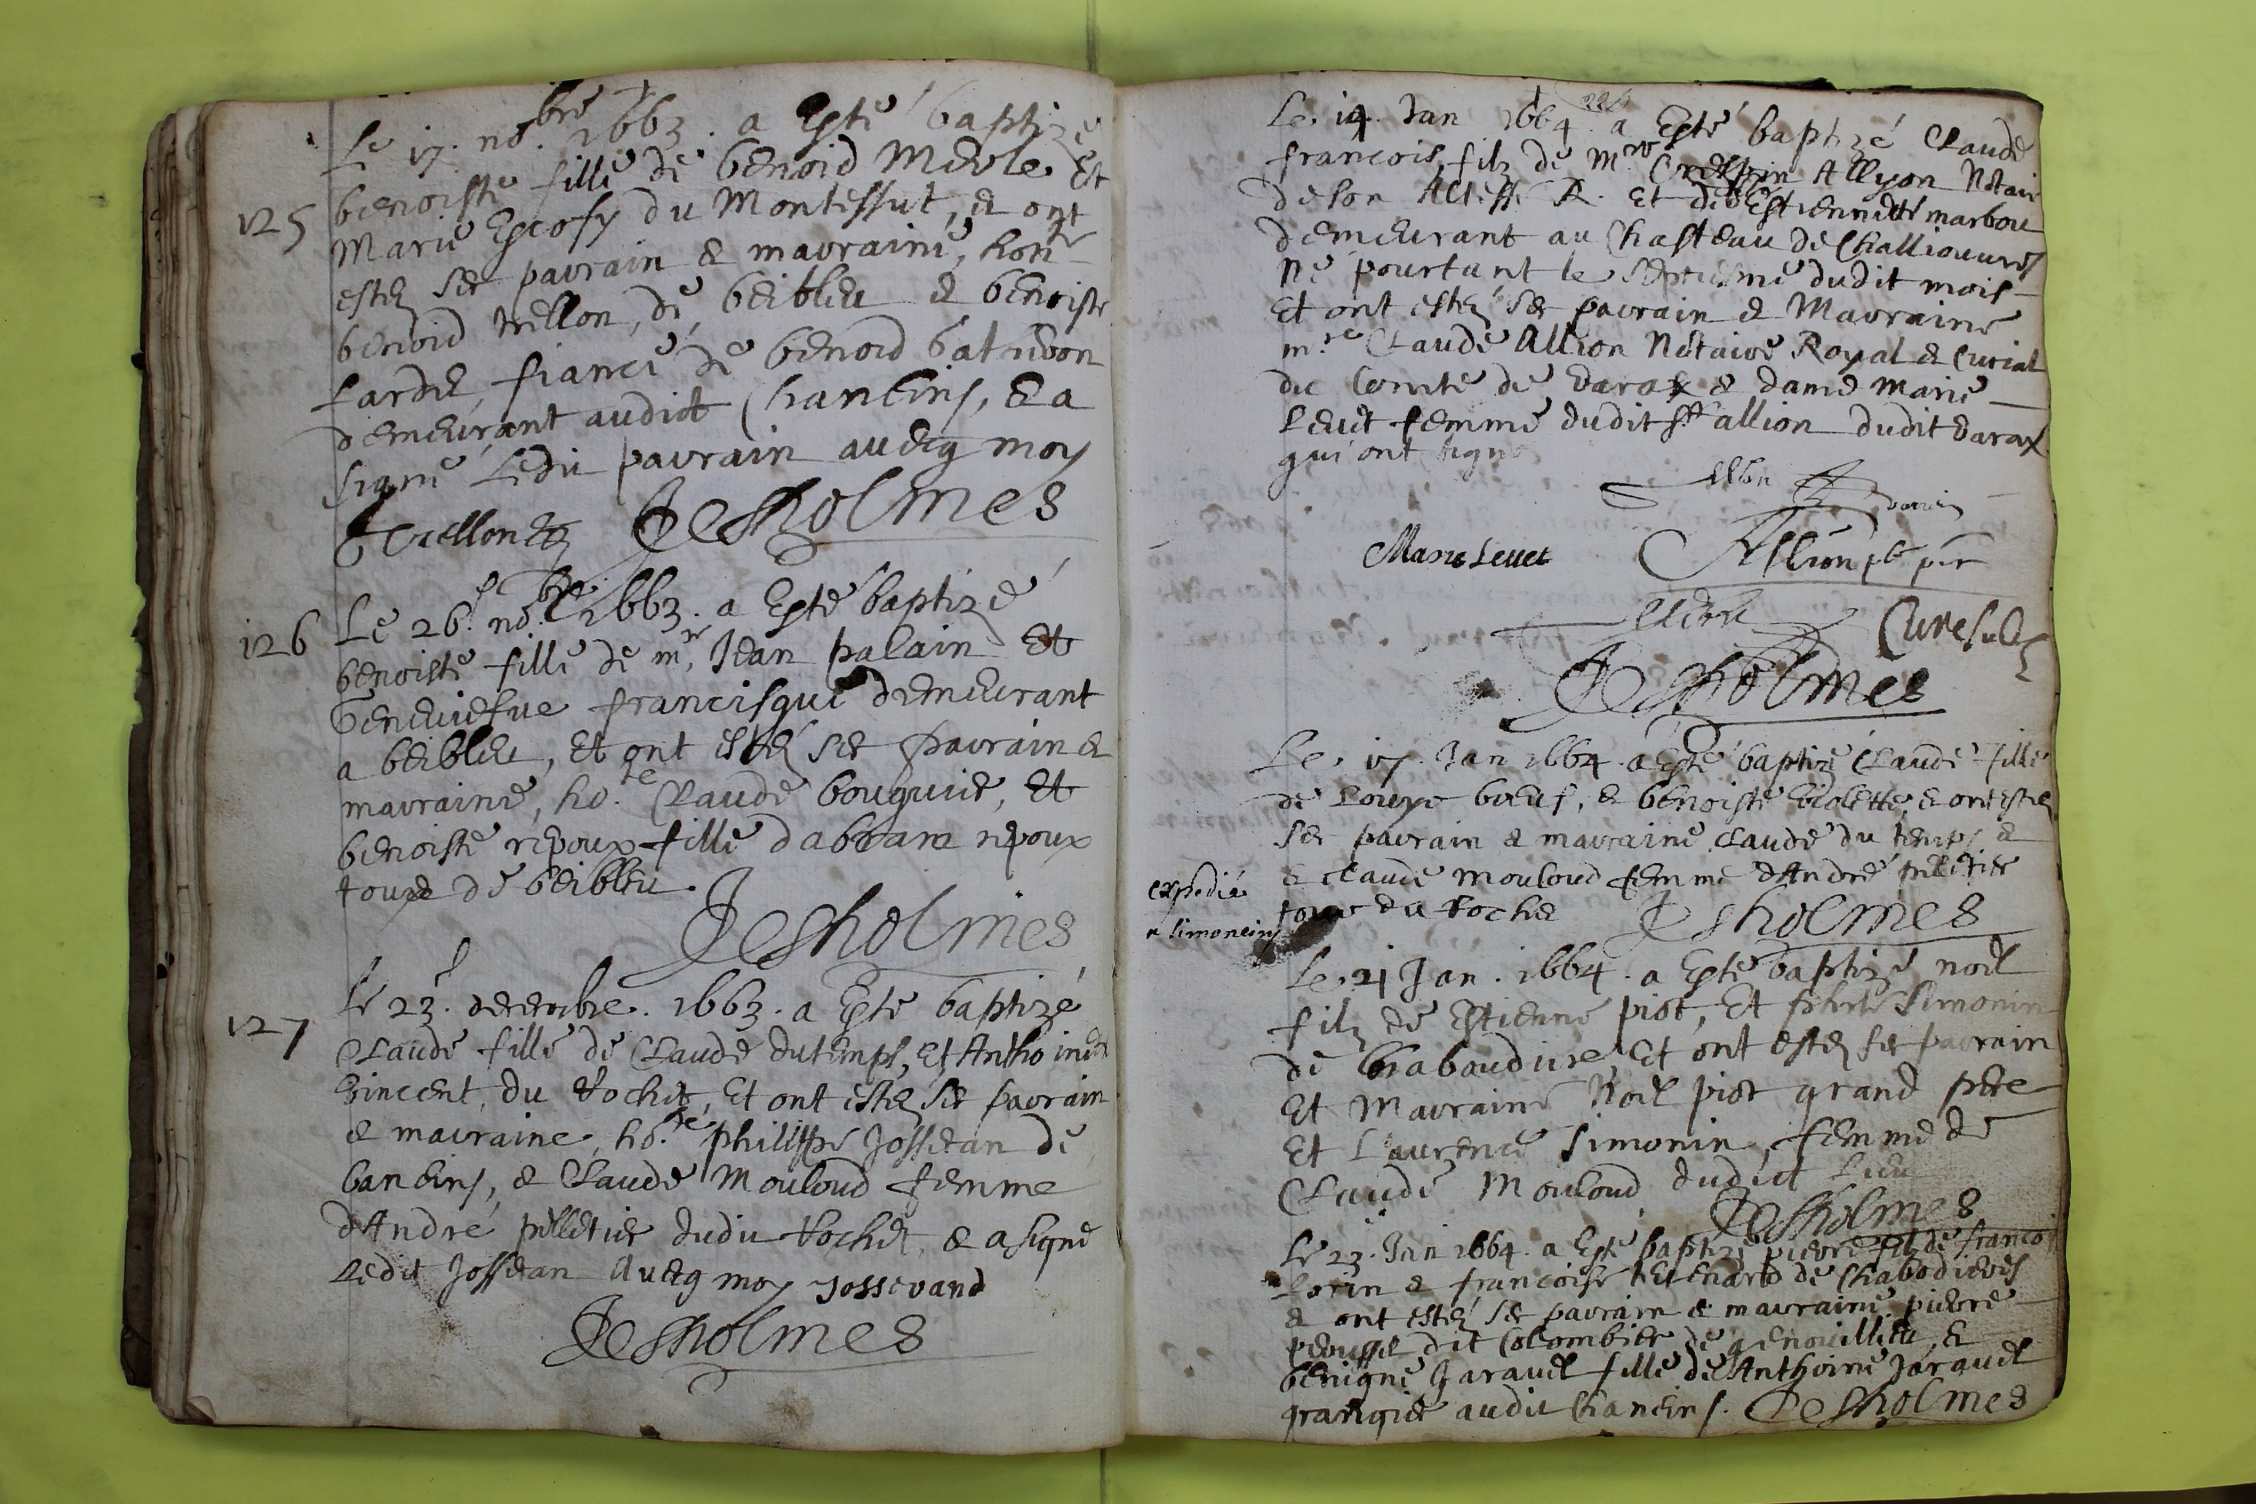 Le 17. no.bre 1663. a Esté baptizé
125
benoiste fille de benoid Merle Et
Marie Escofy du Montessut, & ont
estez ses parrain & marraine, hon
benoid trellon, de beibleu & benoiste
Larde, fiancé de benoid
demeurant audict Chaneins, & a
signé Ledit parrain avecq moy
Trellon Desholmes
126
Le 26. no.bre 1663. a Esté baptizé
benoiste fille de mr. Jean palain Et
Geneviefue francisque demeurant
a beibleu, Et ont estéz ses parrain &
marraine, ho.le Claude bouguié, Et
benoiste repoux fille dabram repoux
tous de beibleu.
Desholmes
127
Le 23. decembre. 1663. a Esté baptizé
Claude fille de Claude dutemps, Et Anthoinette
Vincent, du Rochet, Et ont estéz ses parrain
& marraine, ho.le philippe Josseran de
baneins, & Claude Mouloud femme
dAndré pelletier dudit Rochet, & a signé
Ledit Josseran Avecq moy Josserand
Desholmes
Le. 14. Jan 1664. a Esté baptizé Claude
francois filz de M.re Crespin Allyon Notaire
de son Altesse R. Et de Estiennette marbou
demeurant au Chasteau de Challiouvres
Né pourtant le septiesme dudit mois
Et ont estéz ses parrain & Marraine
m.re Claude Allion Notaire Royal & Curial
du Comté de varax & dame Marie
Levet femme dudit sr. allion dudit varax
qui ont signé
Allion
Marie Levet Allion
Desholmes
Le. 17. Jan 1664. a Esté baptizé Claude fille
de Louys bœuf, & benoiste Violette, & ont estez
ses parrain & marraine Claude du temps &
& Claude Mouloud femme dAndré pelletier
expedié
a simoneins
tous du Rochet Desholmes
Le. 21 Jan. 1664. a Esté baptizé noël
filz de Estienne piot, Et Simonin
de Et ont estéz ses parrain
Et Marraine Noël piot grand pere
Et Laurence Simonin femme de
Claude Mouloud dudict Lieu
Desholmes
Le 23. Jan 1664. a Esté baptizé pierre filz de francois
Lorin & francoise de Chabodieres
& ont estéz ses parrain & marraine pierre
dit Colombier de genouillieu, &
benigne Jaravel fille de Anthoine Jaravel
grangier audit Chaneins. Desholmes